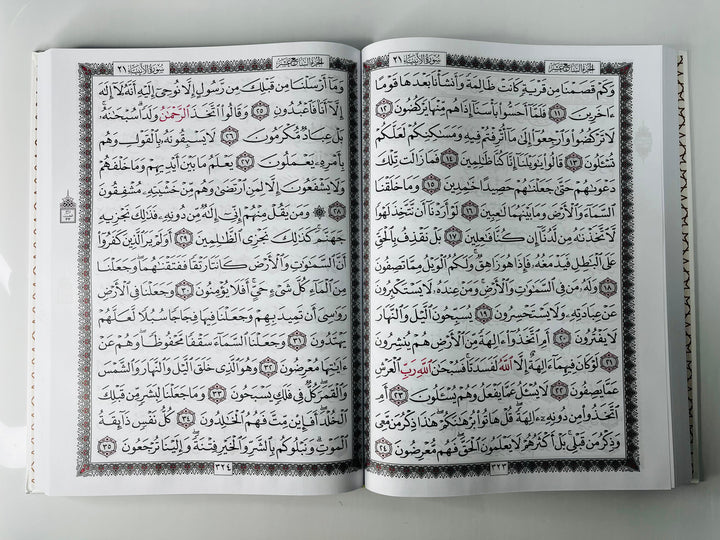 سورة الأنبياء ٢١
الجزء السابع عشر
وَكَمْ قَصَمْنَا مِن قَرْيَةٍ كَانَتْ ظَالِمَةً وَأَنشَأْنَا بَعْدَهَا قَوْمًا
ءَاخَرِينَ ١١ فَلَمَّآ أَحَسُّوا۟ بَأْسَنَآ إِذَا هُم مِّنْهَا يَرْكُضُونَ ١٢
لَا تَرْكُضُوا۟ وَٱرْجِعُوٓا۟ إِلَىٰ مَآ أُتْرِفْتُمْ فِيهِ وَمَسَـٰكِنِكُمْ لَعَلَّكُمْ
تُسْـَٔلُونَ ١٣ قَالُوا۟ يَـٰوَيْلَنَآ إِنَّا كُنَّا ظَـٰلِمِينَ ١٤ فَمَا زَالَت تِّلْكَ
دَعْوَىٰهُمْ حَتَّىٰ جَعَلْنَـٰهُمْ حَصِيدًا خَـٰمِدِينَ ١٥ وَمَا خَلَقْنَا
ٱلسَّمَآءَ وَٱلْأَرْضَ وَمَا بَيْنَهُمَا لَـٰعِبِينَ ١٦ لَوْ أَرَدْنَآ أَن نَّتَّخِذَ لَهْوًا
لَّٱتَّخَذْنَـٰهُ مِن لَّدُنَّآ إِن كُنَّا فَـٰعِلِينَ ١٧ بَلْ نَقْذِفُ بِٱلْحَقِّ
عَلَى ٱلْبَـٰطِلِ فَيَدْمَغُهُۥ فَإِذَا هُوَ زَاهِقٌ ۚ وَلَكُمُ ٱلْوَيْلُ مِمَّا تَصِفُونَ
١٨ وَلَهُۥ مَن فِى ٱلسَّمَـٰوَٰتِ وَٱلْأَرْضِ ۚ وَمَنْ عِندَهُۥ لَا يَسْتَكْبِرُونَ
عَنْ عِبَادَتِهِۦ وَلَا يَسْتَحْسِرُونَ ١٩ يُسَبِّحُونَ ٱلَّيْلَ وَٱلنَّهَارَ
لَا يَفْتُرُونَ ٢٠ أَمِ ٱتَّخَذُوٓا۟ ءَالِهَةً مِّنَ ٱلْأَرْضِ هُمْ يُنشِرُونَ
٢١ لَوْ كَانَ فِيهِمَآ ءَالِهَةٌ إِلَّا ٱللَّهُ لَفَسَدَتَا ۚ فَسُبْحَـٰنَ ٱللَّهِ رَبِّ ٱلْعَرْشِ
عَمَّا يَصِفُونَ ٢٢ لَا يُسْـَٔلُ عَمَّا يَفْعَلُ وَهُمْ يُسْـَٔلُونَ ٢٣ أَمِ
ٱتَّخَذُوا۟ مِن دُونِهِۦٓ ءَالِهَةً ۖ قُلْ هَاتُوا۟ بُرْهَـٰنَكُمْ ۖ هَـٰذَا ذِكْرُ مَن مَّعِىَ
وَذِكْرُ مَن قَبْلِى ۗ بَلْ أَكْثَرُهُمْ لَا يَعْلَمُونَ ٱلْحَقَّ ۖ فَهُم مُّعْرِضُونَ ٢٤
٣٢٣
الجزء السابع عشر
سورة الأنبياء ٢١
وَمَآ أَرْسَلْنَا مِن قَبْلِكَ مِن رَّسُولٍ إِلَّا نُوحِىٓ إِلَيْهِ أَنَّهُۥ لَآ إِلَـٰهَ
إِلَّآ أَنَا۠ فَٱعْبُدُونِ ٢٥ وَقَالُوا۟ ٱتَّخَذَ ٱلرَّحْمَـٰنُ وَلَدًا ۗ سُبْحَـٰنَهُۥ ۚ
بَلْ عِبَادٌ مُّكْرَمُونَ ٢٦ لَا يَسْبِقُونَهُۥ بِٱلْقَوْلِ وَهُم
بِأَمْرِهِۦ يَعْمَلُونَ ٢٧ يَعْلَمُ مَا بَيْنَ أَيْدِيهِمْ وَمَا خَلْفَهُمْ
وَلَا يَشْفَعُونَ إِلَّا لِمَنِ ٱرْتَضَىٰ وَهُم مِّنْ خَشْيَتِهِۦ مُشْفِقُونَ
٢٨ ۞ وَمَن يَقُلْ مِنْهُمْ إِنِّىٓ إِلَـٰهٌ مِّن دُونِهِۦ فَذَٰلِكَ نَجْزِيهِ
جَهَنَّمَ ۚ كَذَٰلِكَ نَجْزِى ٱلظَّـٰلِمِينَ ٢٩ أَوَلَمْ يَرَ ٱلَّذِينَ كَفَرُوٓا۟
أَنَّ ٱلسَّمَـٰوَٰتِ وَٱلْأَرْضَ كَانَتَا رَتْقًا فَفَتَقْنَـٰهُمَا ۖ وَجَعَلْنَا
مِنَ ٱلْمَآءِ كُلَّ شَىْءٍ حَىٍّ ۖ أَفَلَا يُؤْمِنُونَ ٣٠ وَجَعَلْنَا فِى ٱلْأَرْضِ
رَوَٰسِىَ أَن تَمِيدَ بِهِمْ وَجَعَلْنَا فِيهَا فِجَاجًا سُبُلًا لَّعَلَّهُمْ
يَهْتَدُونَ ٣١ وَجَعَلْنَا ٱلسَّمَآءَ سَقْفًا مَّحْفُوظًا ۖ وَهُمْ عَنْ
ءَايَـٰتِهَا مُعْرِضُونَ ٣٢ وَهُوَ ٱلَّذِى خَلَقَ ٱلَّيْلَ وَٱلنَّهَارَ وَٱلشَّمْسَ
وَٱلْقَمَرَ ۖ كُلٌّ فِى فَلَكٍ يَسْبَحُونَ ٣٣ وَمَا جَعَلْنَا لِبَشَرٍ مِّن قَبْلِكَ
ٱلْخُلْدَ ۖ أَفَإِي۟ن مِّتَّ فَهُمُ ٱلْخَـٰلِدُونَ ٣٤ كُلُّ نَفْسٍ ذَآئِقَةُ
ٱلْمَوْتِ ۗ وَنَبْلُوكُم بِٱلشَّرِّ وَٱلْخَيْرِ فِتْنَةً ۖ وَإِلَيْنَا تُرْجَعُونَ ٣٥
٣٢٤